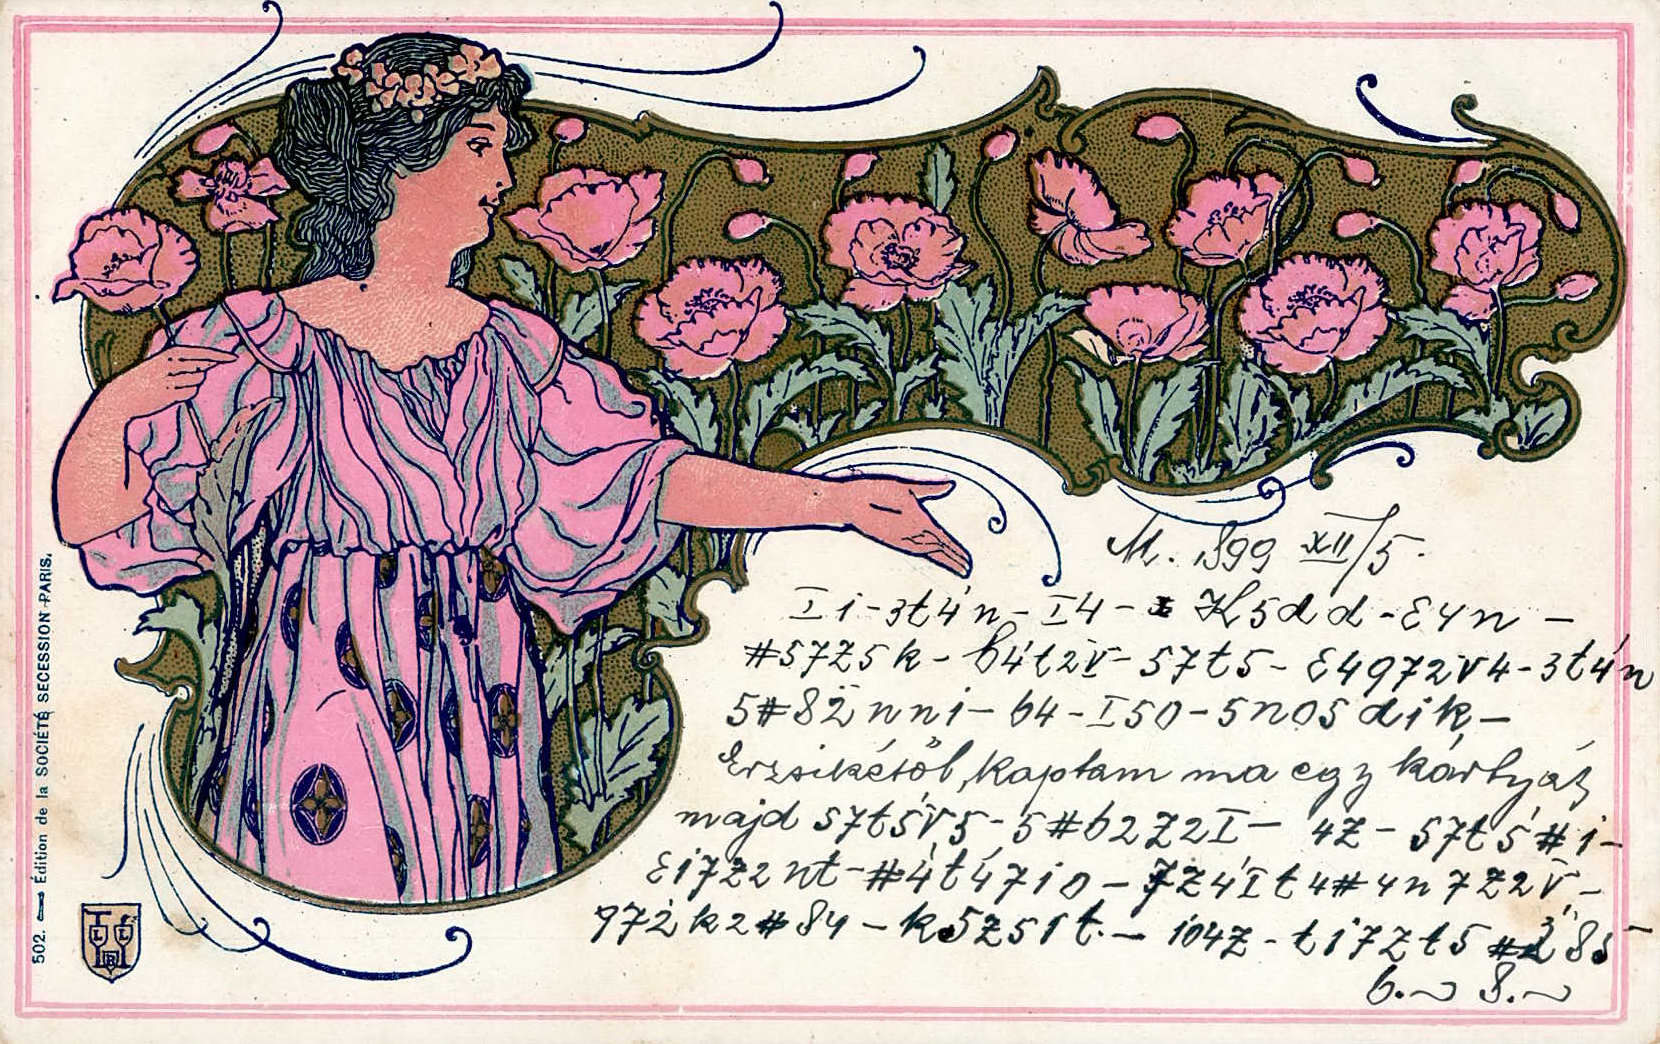 M. 899 XII/5.
I i - 3t4'n - I4 - I K5dd - E4n -
#57Z5k - 64't2V - 57t5 - E4972V4 - 3t4'n
5#82̈nni - 64 - I50 - 5n05dik -
Erzsikétől, kaptam ma egy kártyát
majd 57t5'V5 - 5#62Z2I - 4Z - 57t5'#i -
Ei7Z2nt - #4't4'7i0 - 7Z4'It4#4n7Z2V -
972'k2#84 - k5Z51t. - 104Z - ti7Zt5 #2'85 -
6. 8.
502. Édition de la SOCIÉTÉ SECESSION PARIS.